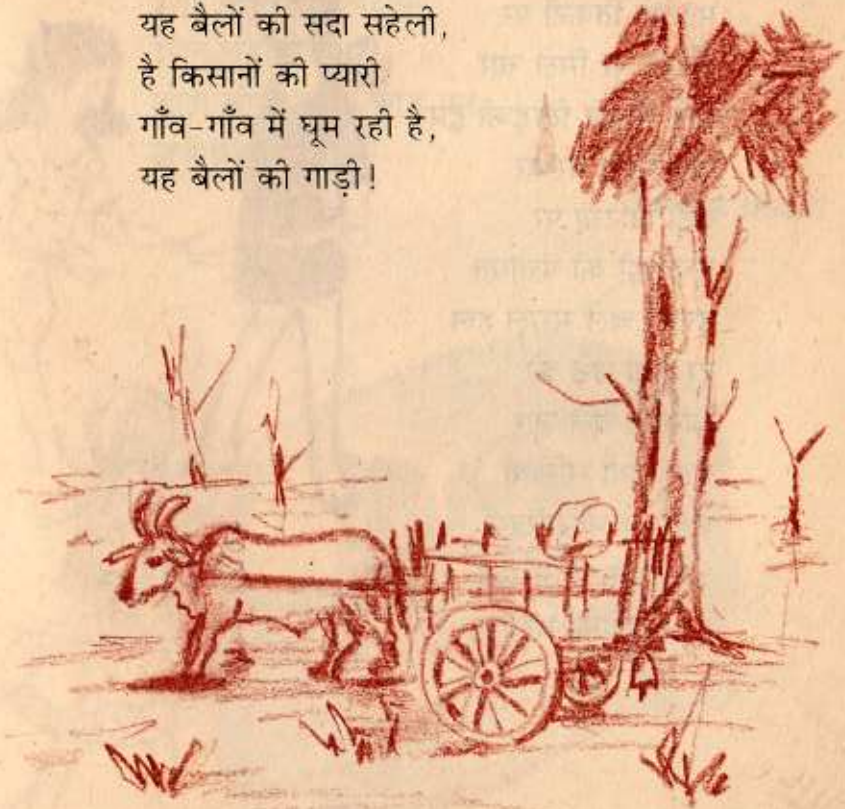 यह बैलों की सदा सहेली,
है किसानों की प्यारी
गाँव-गाँव में घूम रही है,
यह बैलों की गाड़ी!